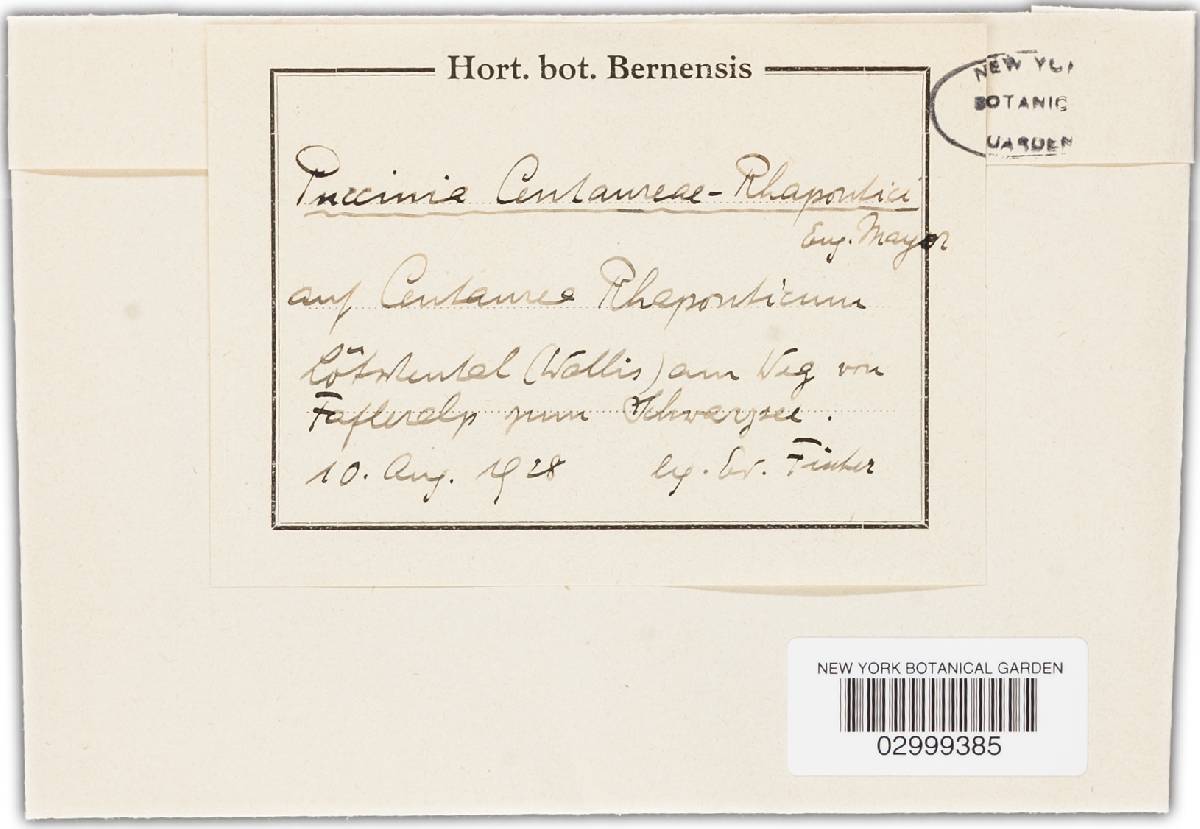 Hort. bot. Bernensis
NEW YO
BOTANIC
GARDEN
Puccinia Centaureae-Rhapontici
Eug. Mayor
auf Centaurea Rhaponticum
Lötschental (Wallis) am Weg von
Fafleralp zum Schwarzsee.
10. Aug. 1928 leg. Ed. Fischer
NEW YORK BOTANICAL GARDEN
02999385